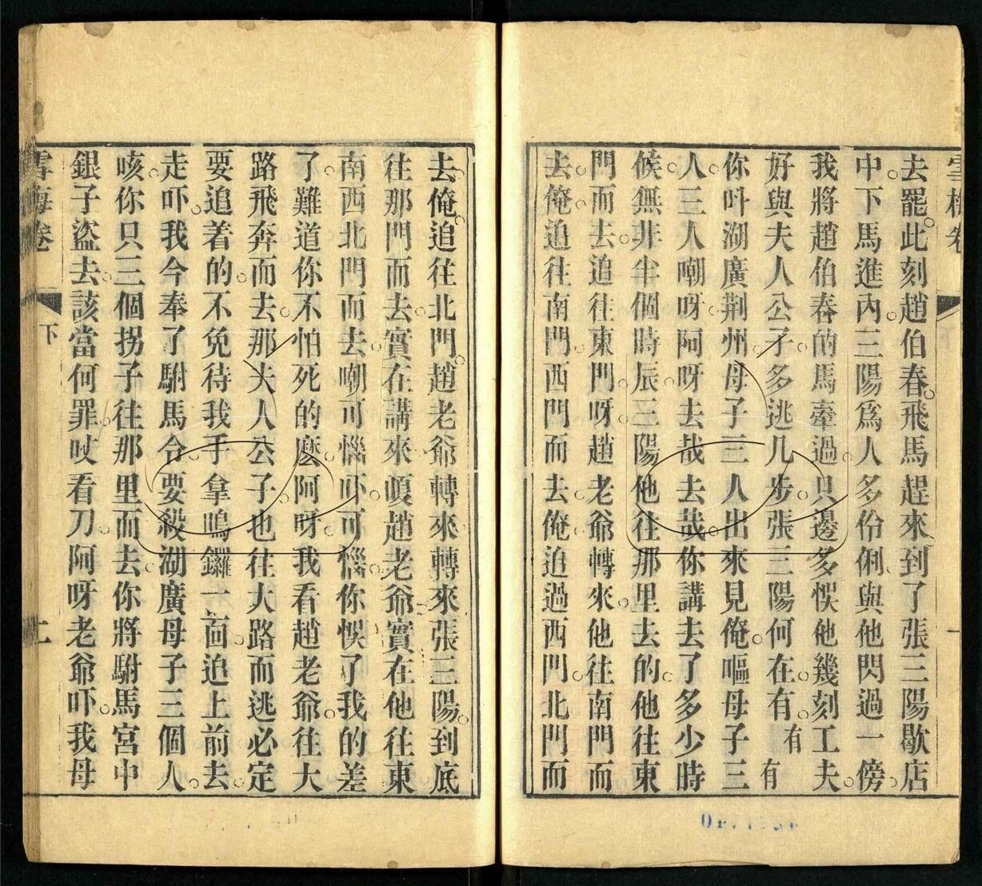 去罷此刻趙伯春飛馬趕來到了張三陽歇店
中下馬進內三陽爲人多伶俐與他閃過一傍
我將趙伯春的馬牽過只邊多悞他幾刻工夫
好與夫人公子多逃几步張三陽何在有有有
你呌湖廣荆州母子三人出來見俺嘔母子三
人三人嘲呀阿呀去哉去哉你講去了多少時
候無非半個時辰三陽他往那里去的他往東
門而去追往東門呀趙老爺轉來他往南門而
去俺追往南門西門而去俺追過西門北門而
去俺追往北門趙老爺轉來轉來張三陽到底
往那門而去實在講來嗄趙老爺實在他往東
南西北門而去嘲可惱吓可惱你悞了我的差
了難道你不怕死的麽阿呀我看趙老爺往大
路飛奔而去那夫人公子也往大路而逃必定
要追着的不免待我手拿鳴鑼一面追上前去
走吓我今奉了駙馬令要殺湖廣母子三個人
咳你只三個拐子往那里而去你將駙馬宮中
銀子盜去該當何罪吱看刀阿呀老爺吓我母
雪梅卷 下 二